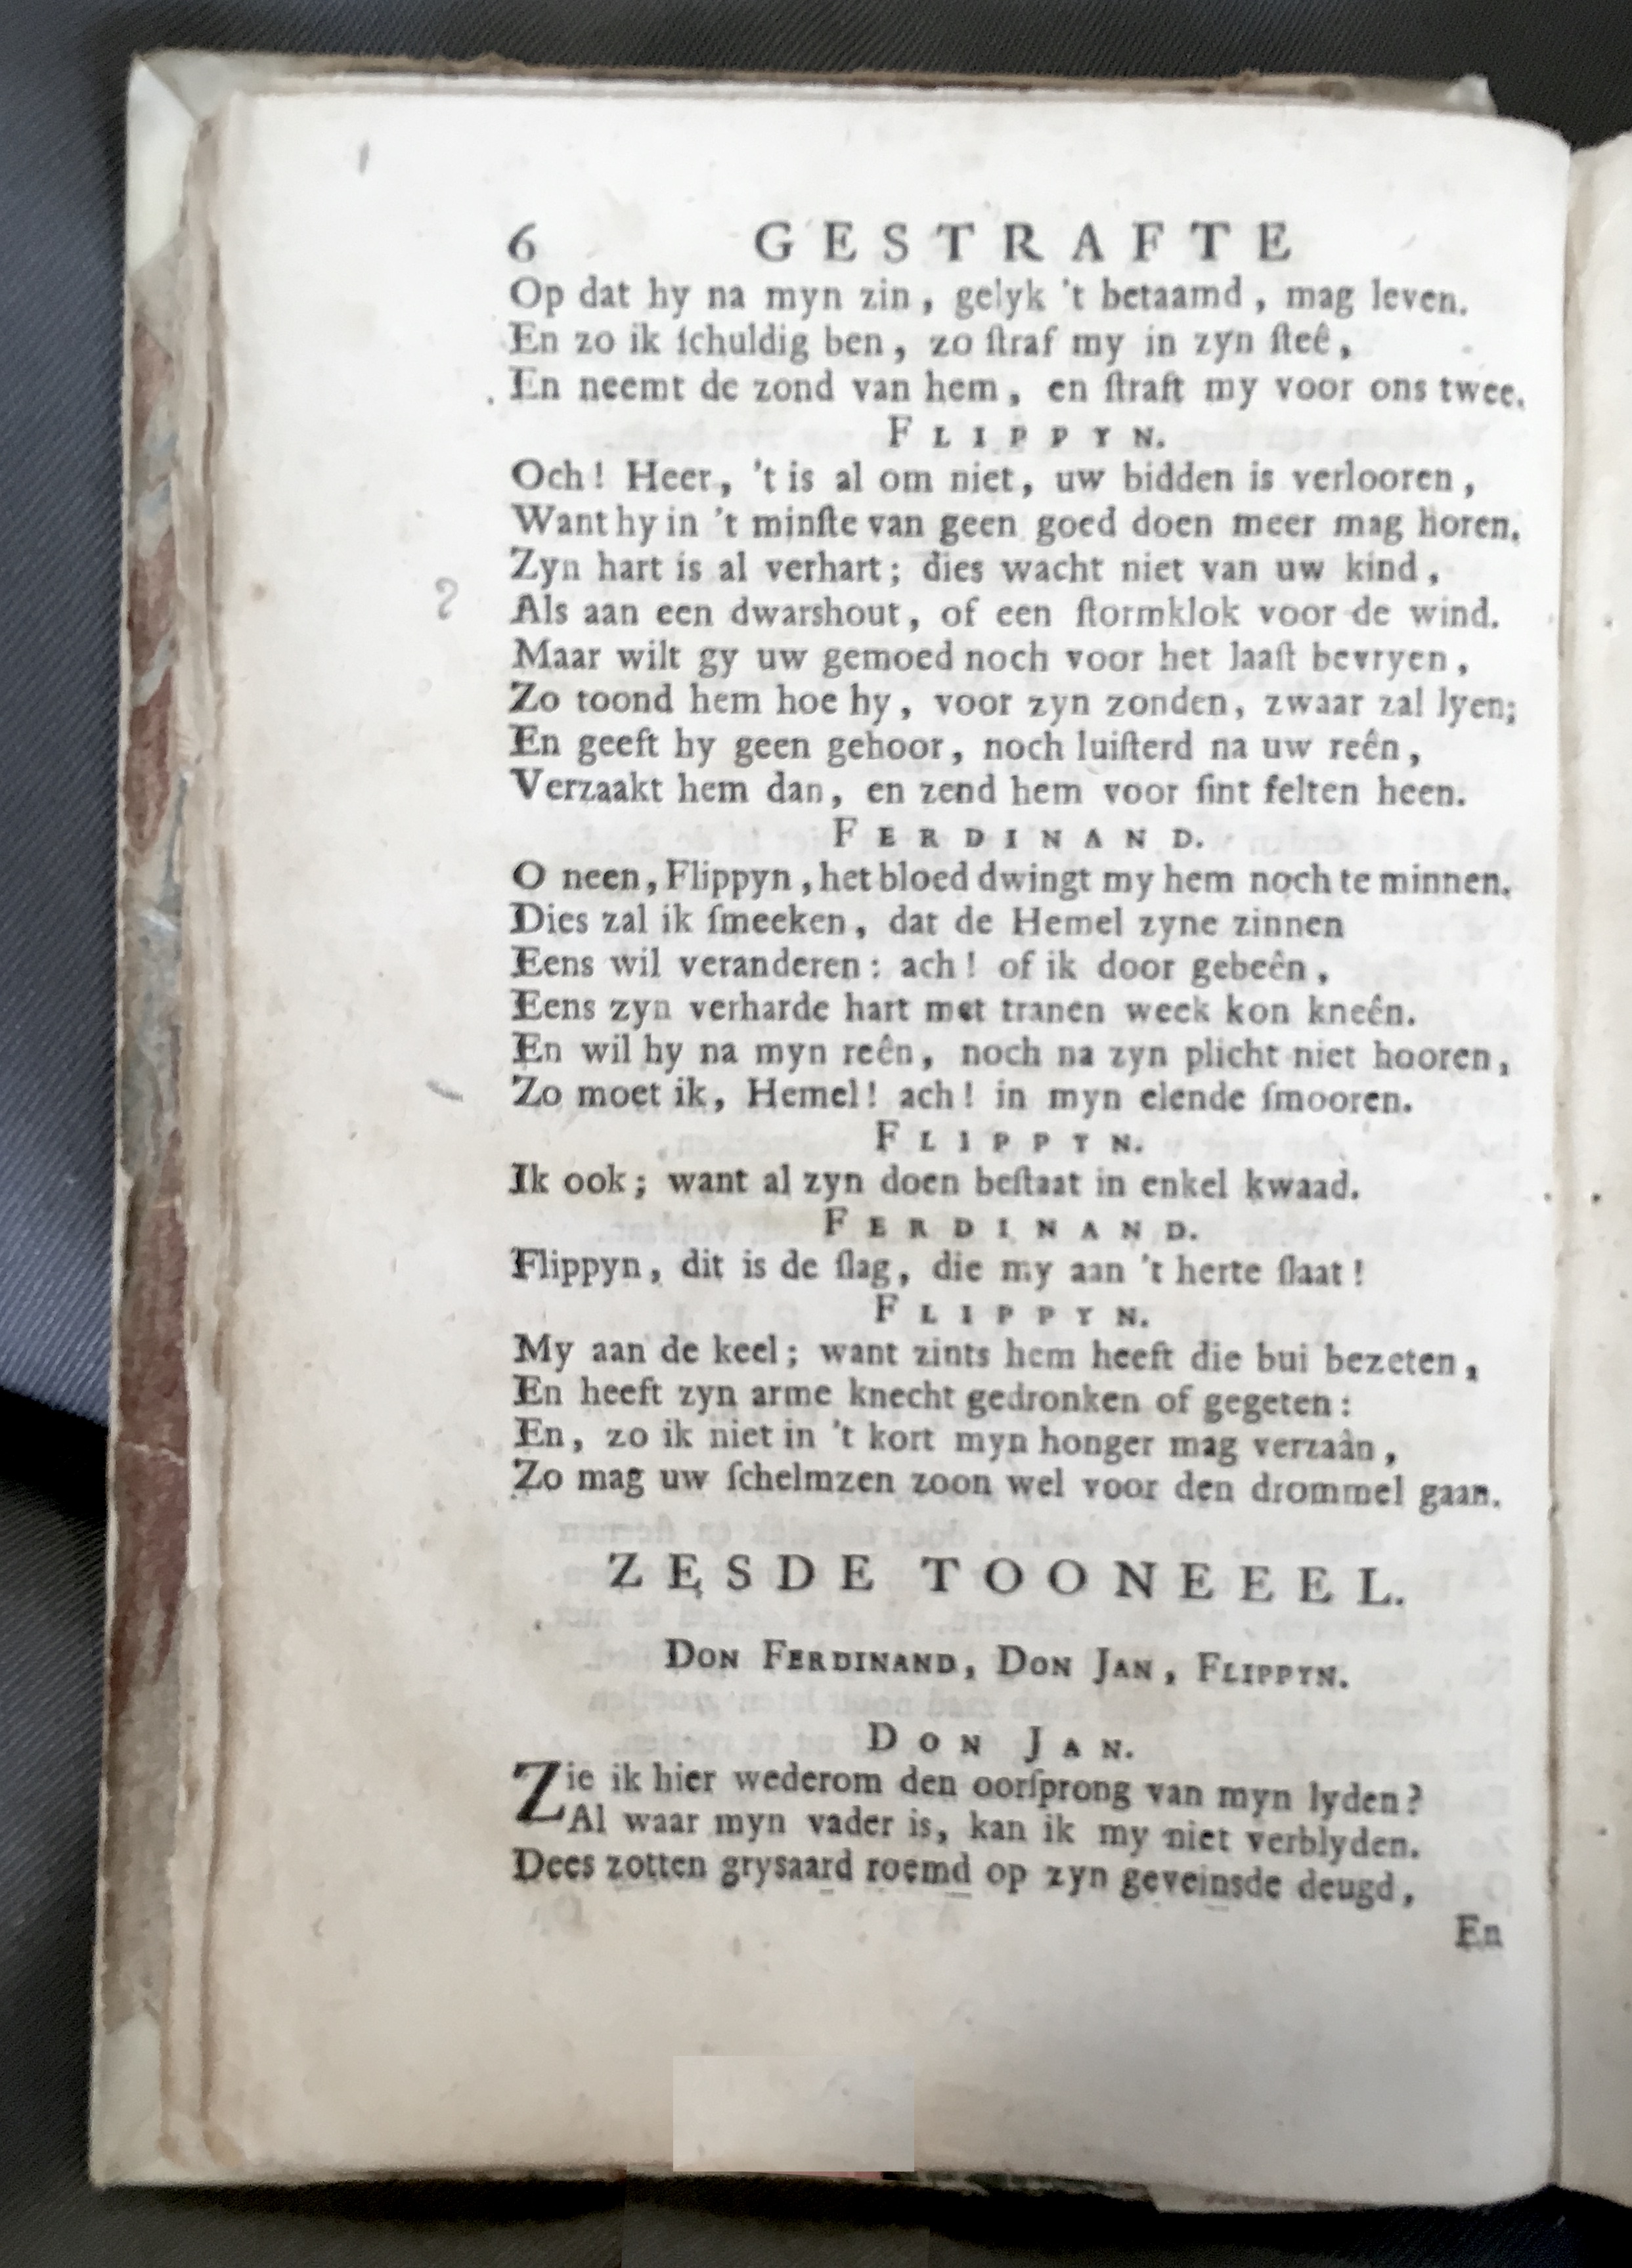 6 GESTRAFTE
Op dat hy na myn zin, gelyk 't betaamd, mag leven.
En zo ik ſchuldig ben, zo ſtraf my in zyn ſteê,
En neemt de zond van hem, en ſtraft my voor ons twee.
FLIPPYN.
Och! Heer, 't is al om niet, uw bidden is verlooren,
Want hy in 't minſte van geen goed doen meer mag horen.
Zyn hart is al verhart; dies wacht niet van uw kind,
Als aan een dwarshout, of een ſtormklok voor de wind.
Maar wilt gy uw gemoed noch voor het laaſt bevryen,
Zo toond hem hoe hy, voor zyn zonden, zwaar zal lyen;
En geeft hy geen gehoor, noch luiſterd na uw reên,
Verzaakt hem dan, en zend hem voor ſint felten heen.
FERDINAND.
O neen, Flippyn, het bloed dwingt my hem noch te minnen.
Dies zal ik ſmeeken, dat de Hemel zyne zinnen
Eens wil veranderen: ach! of ik door gebeên,
Eens zyn verharde hart met tranen week kon kneên.
En wil hy na myn reên, noch na zyn plicht niet hooren,
Zo moet ik, Hemel! ach! in myn elende ſmooren.
FLIPPYN.
Ik ook; want al zyn doen beſtaat in enkel kwaad.
FERDINAND.
Flippyn, dit is de ſlag, die my aan 't herte ſlaat!
FLIPPYN.
My aan de keel; want zints hem heeft die bui bezeten,
En heeft zyn arme knecht gedronken of gegeten:
En, zo ik niet in 't kort myn honger mag verzaân,
Zo mag uw ſchelmzen zoon wel voor den drommel gaan.
ZESDE TOONEEEL.
DON FERDINAND, DON JAN, FLIPPYN.
DON JAN.
Zie ik hier wederom den oorſprong van myn lyden?
Al waar myn vader is, kan ik my niet verblyden.
Dees zotten grysaard roemd op zyn geveinsde deugd,
En